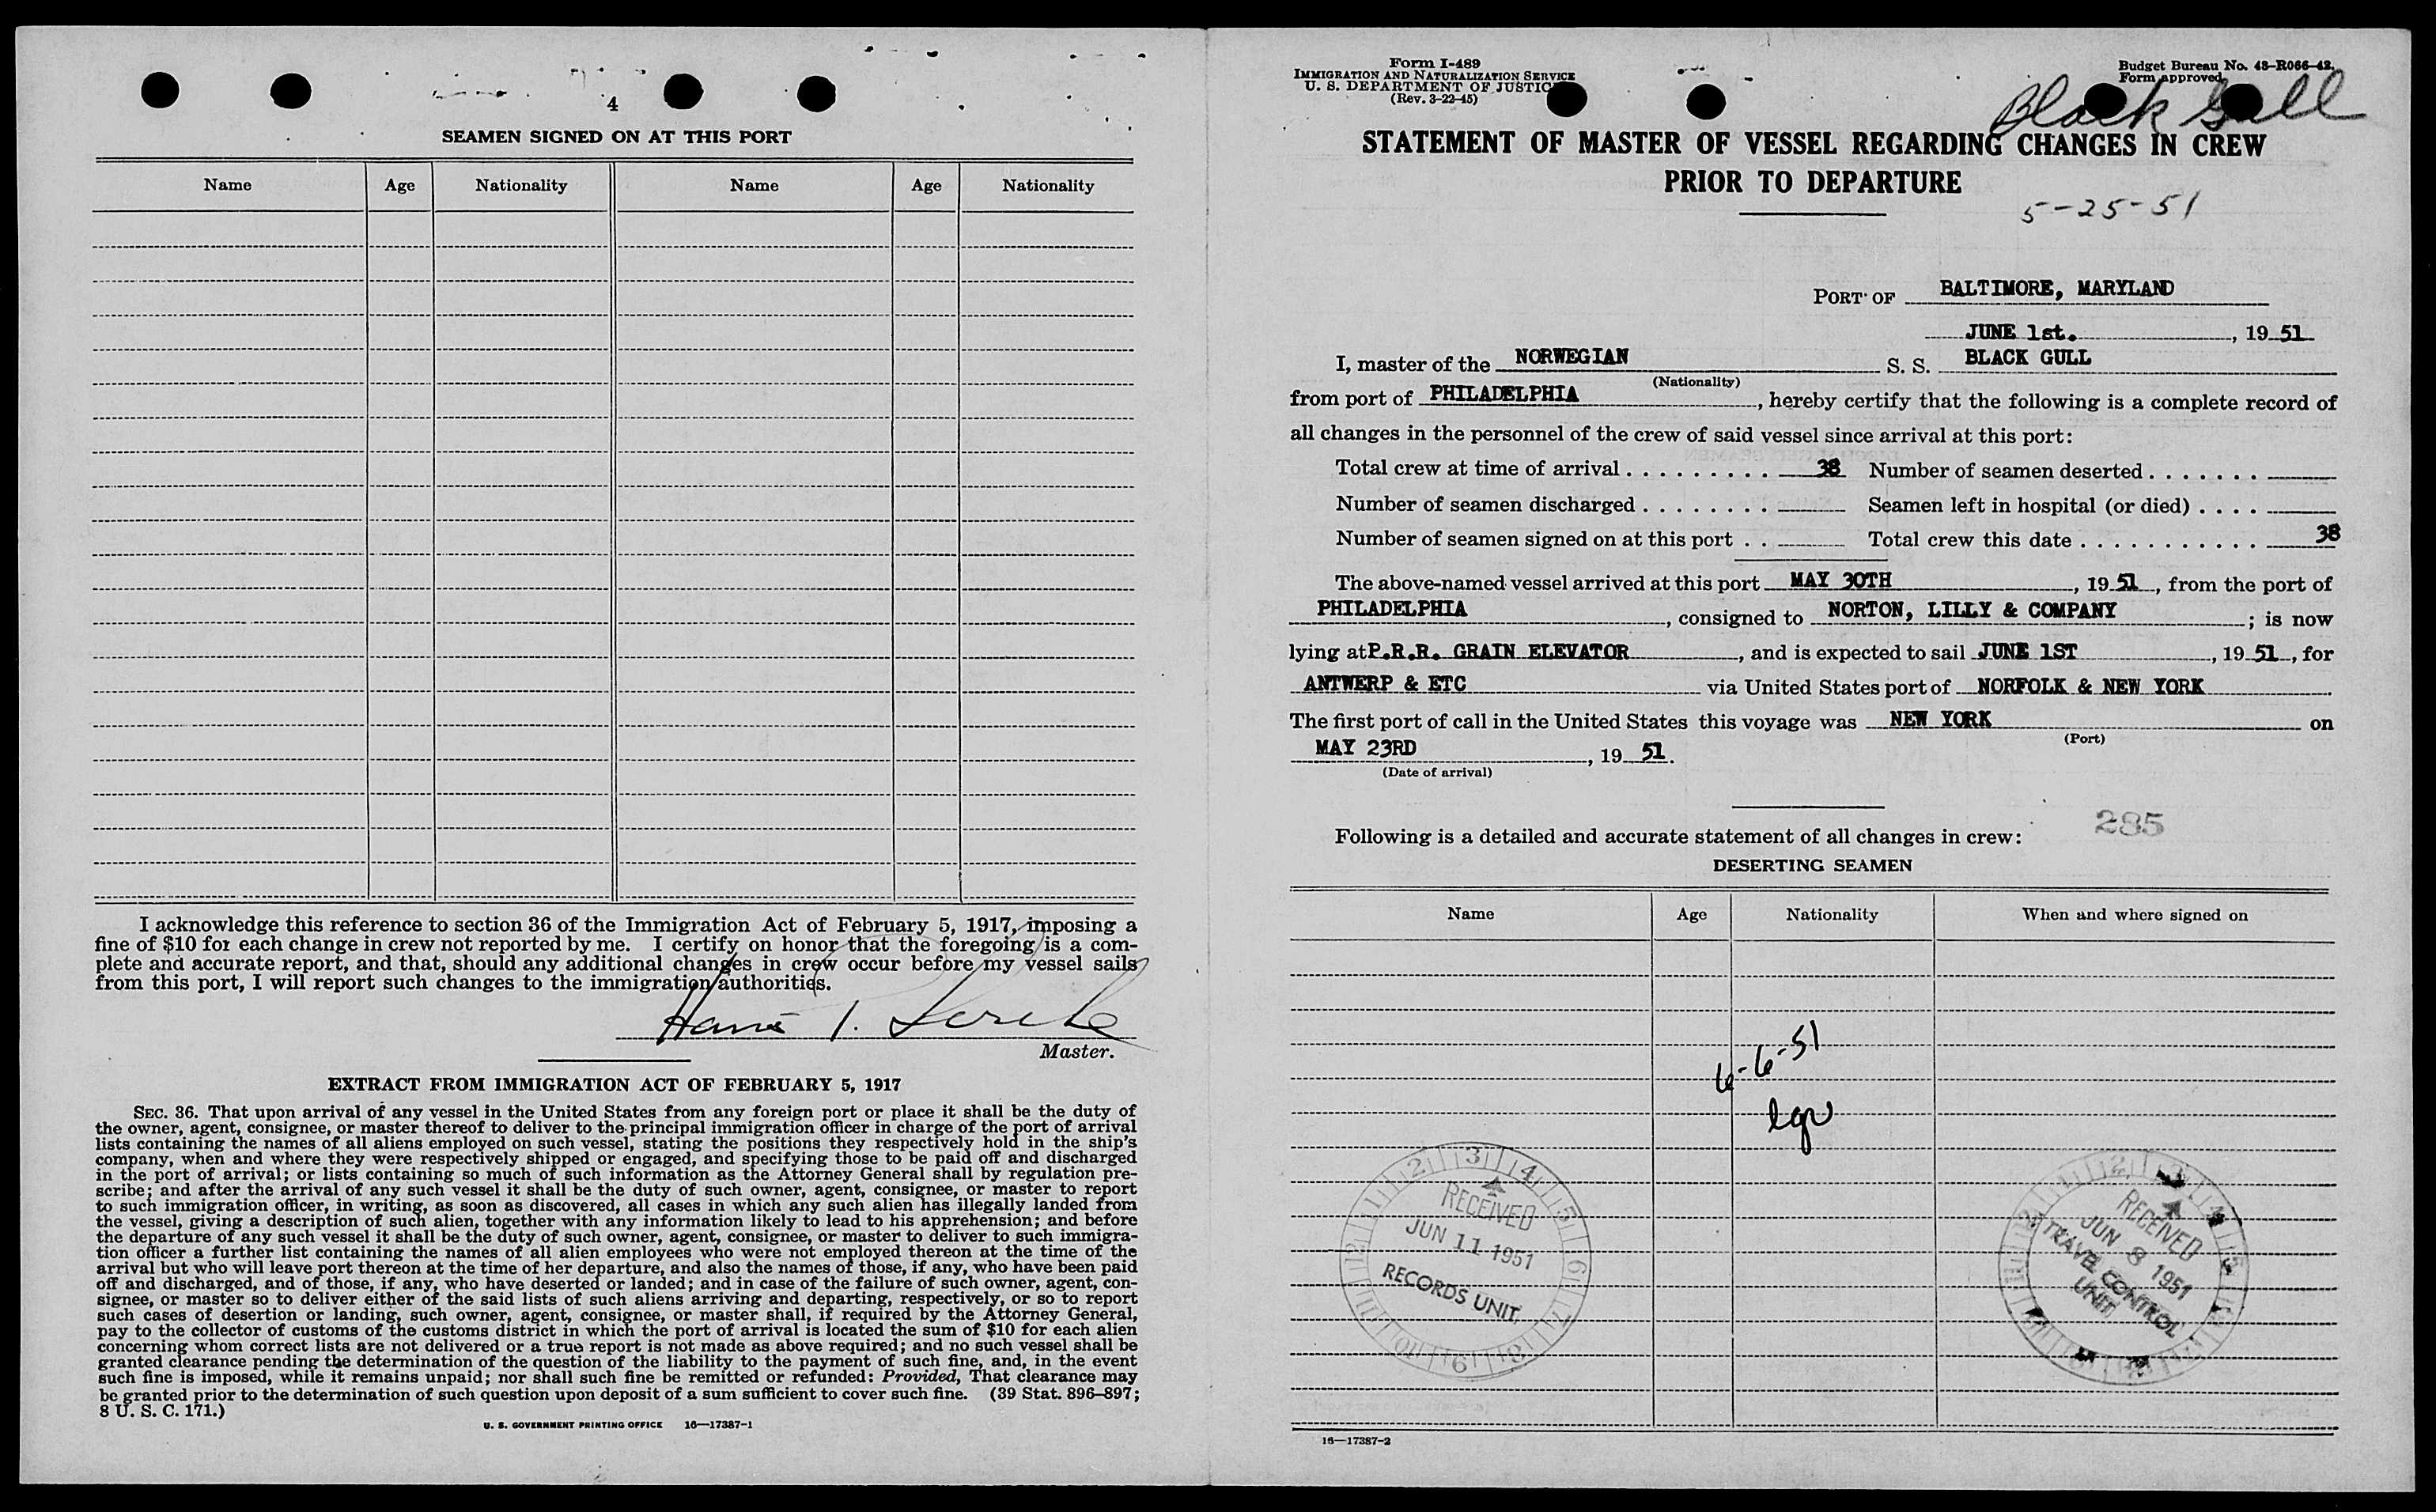 4
SEAMEN SIGNED ON AT THIS PORT
Name Age Nationality Name Age Nationality
I acknowledge this reference to section 36 of the Immigration Act of February 5, 1917, imposing a
fine of $10 for each change in crew not reported by me. I certify on honor that the foregoing is a com-
plete and accurate report, and that, should any additional changes in crew occur before my vessel sails
from this port, I will report such changes to the immigration authorities.
Master.
EXTRACT FROM IMMIGRATION ACT OF FEBRUARY 5, 1917
SEC. 36. That upon arrival of any vessel in the United States from any foreign port or place it shall be the duty of
the owner, agent, consignee, or master thereof to deliver to the principal immigration officer in charge of the port of arrival
lists containing the names of all aliens employed on such vessel, stating the positions they respectively hold in the ship's
company, when and where they were respectively shipped or engaged, and specifying those to be paid off and discharged
in the port of arrival; or lists containing so much of such information as the Attorney General shall by regulation pre-
scribe; and after the arrival of any such vessel it shall be the duty of such owner, agent, consignee, or master to report
to such immigration officer, in writing, as soon as discovered, all cases in which any such alien has illegally landed from
the vessel, giving a description of such alien, together with any information likely to lead to his apprehension; and before
the departure of any such vessel it shall be the duty of such owner, agent, consignee, or master to deliver to such immigra-
tion officer a further list containing the names of all alien employees who were not employed thereon at the time of the
arrival but who will leave port thereon at the time of her departure, and also the names of those, if any, who have been paid
off and discharged, and of those, if any, who have deserted or landed; and in case of the failure of such owner, agent, con-
signee, or master so to deliver either of the said lists of such aliens arriving and departing, respectively, or so to report
such cases of desertion or landing, such owner, agent, consignee, or master shall, if required by the Attorney General,
pay to the collector of customs of the customs district in which the port of arrival is located the sum of $10 for each alien
concerning whom correct lists are not delivered or a true report is not made as above required; and no such vessel shall be
granted clearance pending the determination of the question of the liability to the payment of such fine, and, in the event
such fine is imposed, while it remains unpaid; nor shall such fine be remitted or refunded: Provided, That clearance may
be granted prior to the determination of such question upon deposit of a sum sufficient to cover such fine. (39 Stat. 896–897;
8 U. S. C. 171.)
U. S. GOVERNMENT PRINTING OFFICE 16—17387-1
Form I-489
IMMIGRATION AND NATURALIZATION SERVICE
U. S. DEPARTMENT OF JUSTIC
(Rev. 3-22-45)
Budget Bureau No. 43-R066-42.
Form approved
Black Gull
STATEMENT OF MASTER OF VESSEL REGARDING CHANGES IN CREW
PRIOR TO DEPARTURE
5-25-51
PORT OF BALTIMORE, MARYLAND
JUNE 1st. , 19 51
I, master of the NORWEGIAN S. S. BLACK GULL
(Nationality)
from port of PHILADELPHIA , hereby certify that the following is a complete record of
all changes in the personnel of the crew of said vessel since arrival at this port:
Total crew at time of arrival . . . . . . . . . 38 Number of seamen deserted . . . . . . .
Number of seamen discharged . . . . . . . . Seamen left in hospital (or died) . . . .
Number of seamen signed on at this port . . Total crew this date . . . . . . . . . . . 38
The above-named vessel arrived at this port MAY 30TH , 19 51 , from the port of
PHILADELPHIA , consigned to NORTON, LILLY & COMPANY ; is now
lying at P.R.R. GRAIN ELEVATOR , and is expected to sail JUNE 1ST , 19 51 , for
ANTWERP & ETC via United States port of NORFOLK & NEW YORK
The first port of call in the United States this voyage was NEW YORK on
(Port)
MAY 23RD , 19 51.
(Date of arrival)
285
Following is a detailed and accurate statement of all changes in crew:
DESERTING SEAMEN
Name Age Nationality When and where signed on
6-6-51
RECEIVED
JUN 11 1951
RECORDS UNIT
RECEIVED
JUN 8 1951
TRAVEL CONTROL
UNIT
16—17387-2